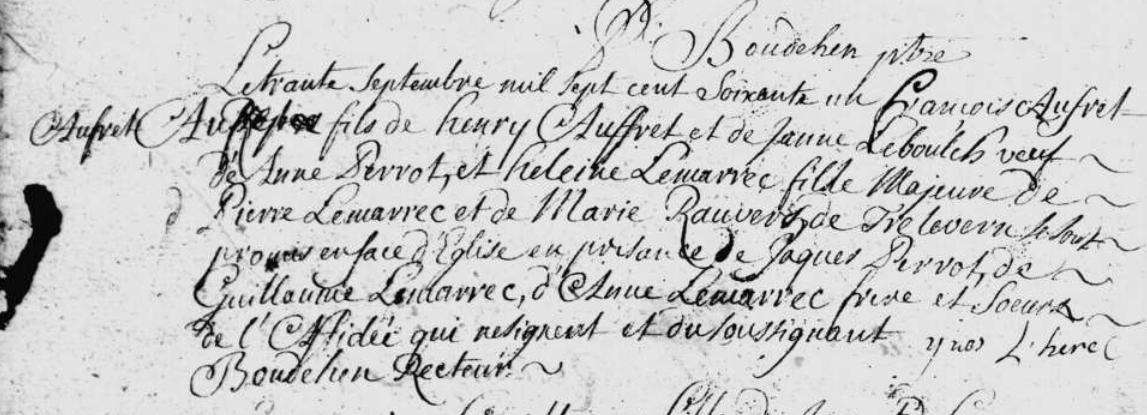 Boudehen ptre
Le trante Septembre mil sept cent Soixante un François Aufret
Aufret fils de henry Auffret et de Janne Leboulch veuf
de Anne Perrot, et heleine Lemarrec fille Majeure de
Pierre Lemarrec et de Marie Rauvers, de Trelevern se sont
promis en face d'Eglise en présance de Jaques Perrot, de
Guillaume Lemarrec, d'Anne Lemarrec frere et Soeurs
de l'Affidéé qui ne signent et du soussignant yves L'here
Boudehen Recteur.